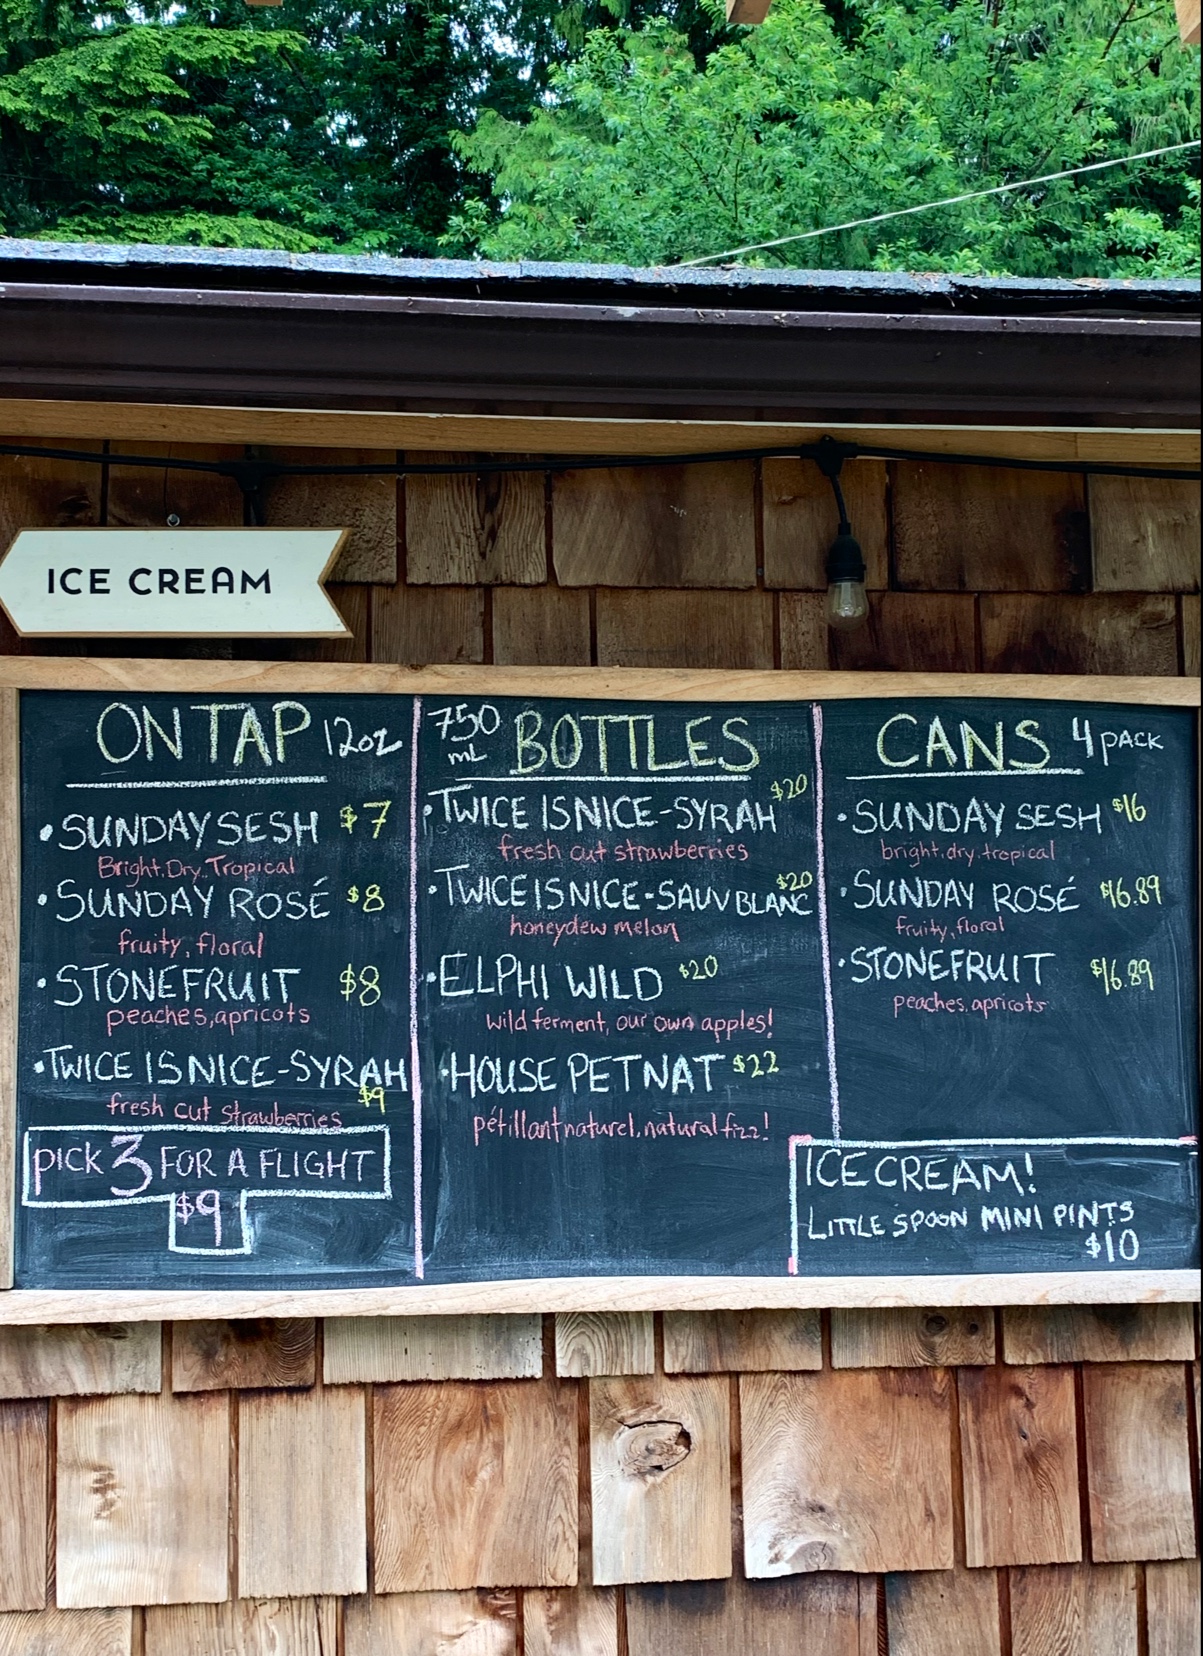 ICE CREAM
ON TAP 12oz
• SUNDAY SESH $7
Bright, Dry, Tropical
• SUNDAY ROSÉ $8
fruity, floral
• STONEFRUIT $8
peaches, apricots
• TWICE IS NICE - SYRAH
$9
fresh cut strawberries
PICK 3 FOR A FLIGHT
$9
750 mL BOTTLES
$20
• TWICE IS NICE - SYRAH
fresh cut strawberries
$20
• TWICE IS NICE - SAUV BLANC
honeydew melon
• ELPHI WILD $20
wild ferment, our own apples!
• HOUSE PETNAT $22
pétillant naturel, natural fizz!
CANS 4 PACK
• SUNDAY SESH $16
bright, dry, tropical
• SUNDAY ROSÉ $16.89
fruity, floral
• STONEFRUIT $16.89
peaches, apricots
ICE CREAM!
LITTLE SPOON MINI PINTS
$10